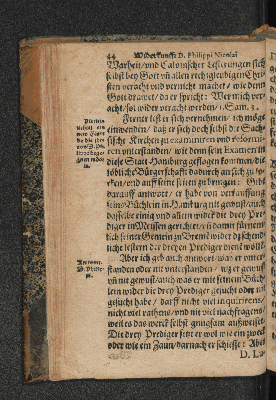 44 Widerkunfft D. Philippi Nicolai
Warheit/und Calvinischer Lesterungen sich
selbst bey Gott uñ allen rechtgleubigen Chri-
sten veracht und vernicht machet / wie denn
Gott drawet / da er spricht: Wer mich ver-
acht / sol wider veracht werden / 1. Sam. 3.
Ferner lest er sich vernehmen / ich möge
einwenden / daß er sich doch selbst der Säch-
sische Kirchen zu examiniren und reformi-
ren unterstanden / wie denn sein Examen in
diese Stat Hamburg geflogen kommen / die
löbliche Bürgerschafft dadurch an sich zu lo-
cken / und auff seine seiten zu bringen: Gibt
darauff antwort / er habe von
sein Büchlein in Hamburg nit gewust / auch
dasselbe einig und allein wider die drey Pre-
diger in Meissen gerichtet / in damit fürnem-
lich seiner Gemein zu Bremē wider dz schend-
liche lestern der dreyen Prediger dienē wolle.
Aber ich geb auch antwort / was er unter-
standen oder nit unterstanden / wz er gewust
uñ nit gewust / auch was er mit seinem Büch-
lein wider die drey Prediger gesucht oder nit
gesucht habe / darff nicht viel inquirirens /
nicht viel rathens / und nit viel nachfragens /
weil es das werck selbst gnugsam auffweiset.
Die drey Prediger sitzt er wol wie ein zweck
oder wie ein Zaun / darnach er schiesse: Aber
D. Lu-
Antwort
D. Philip-
pi.